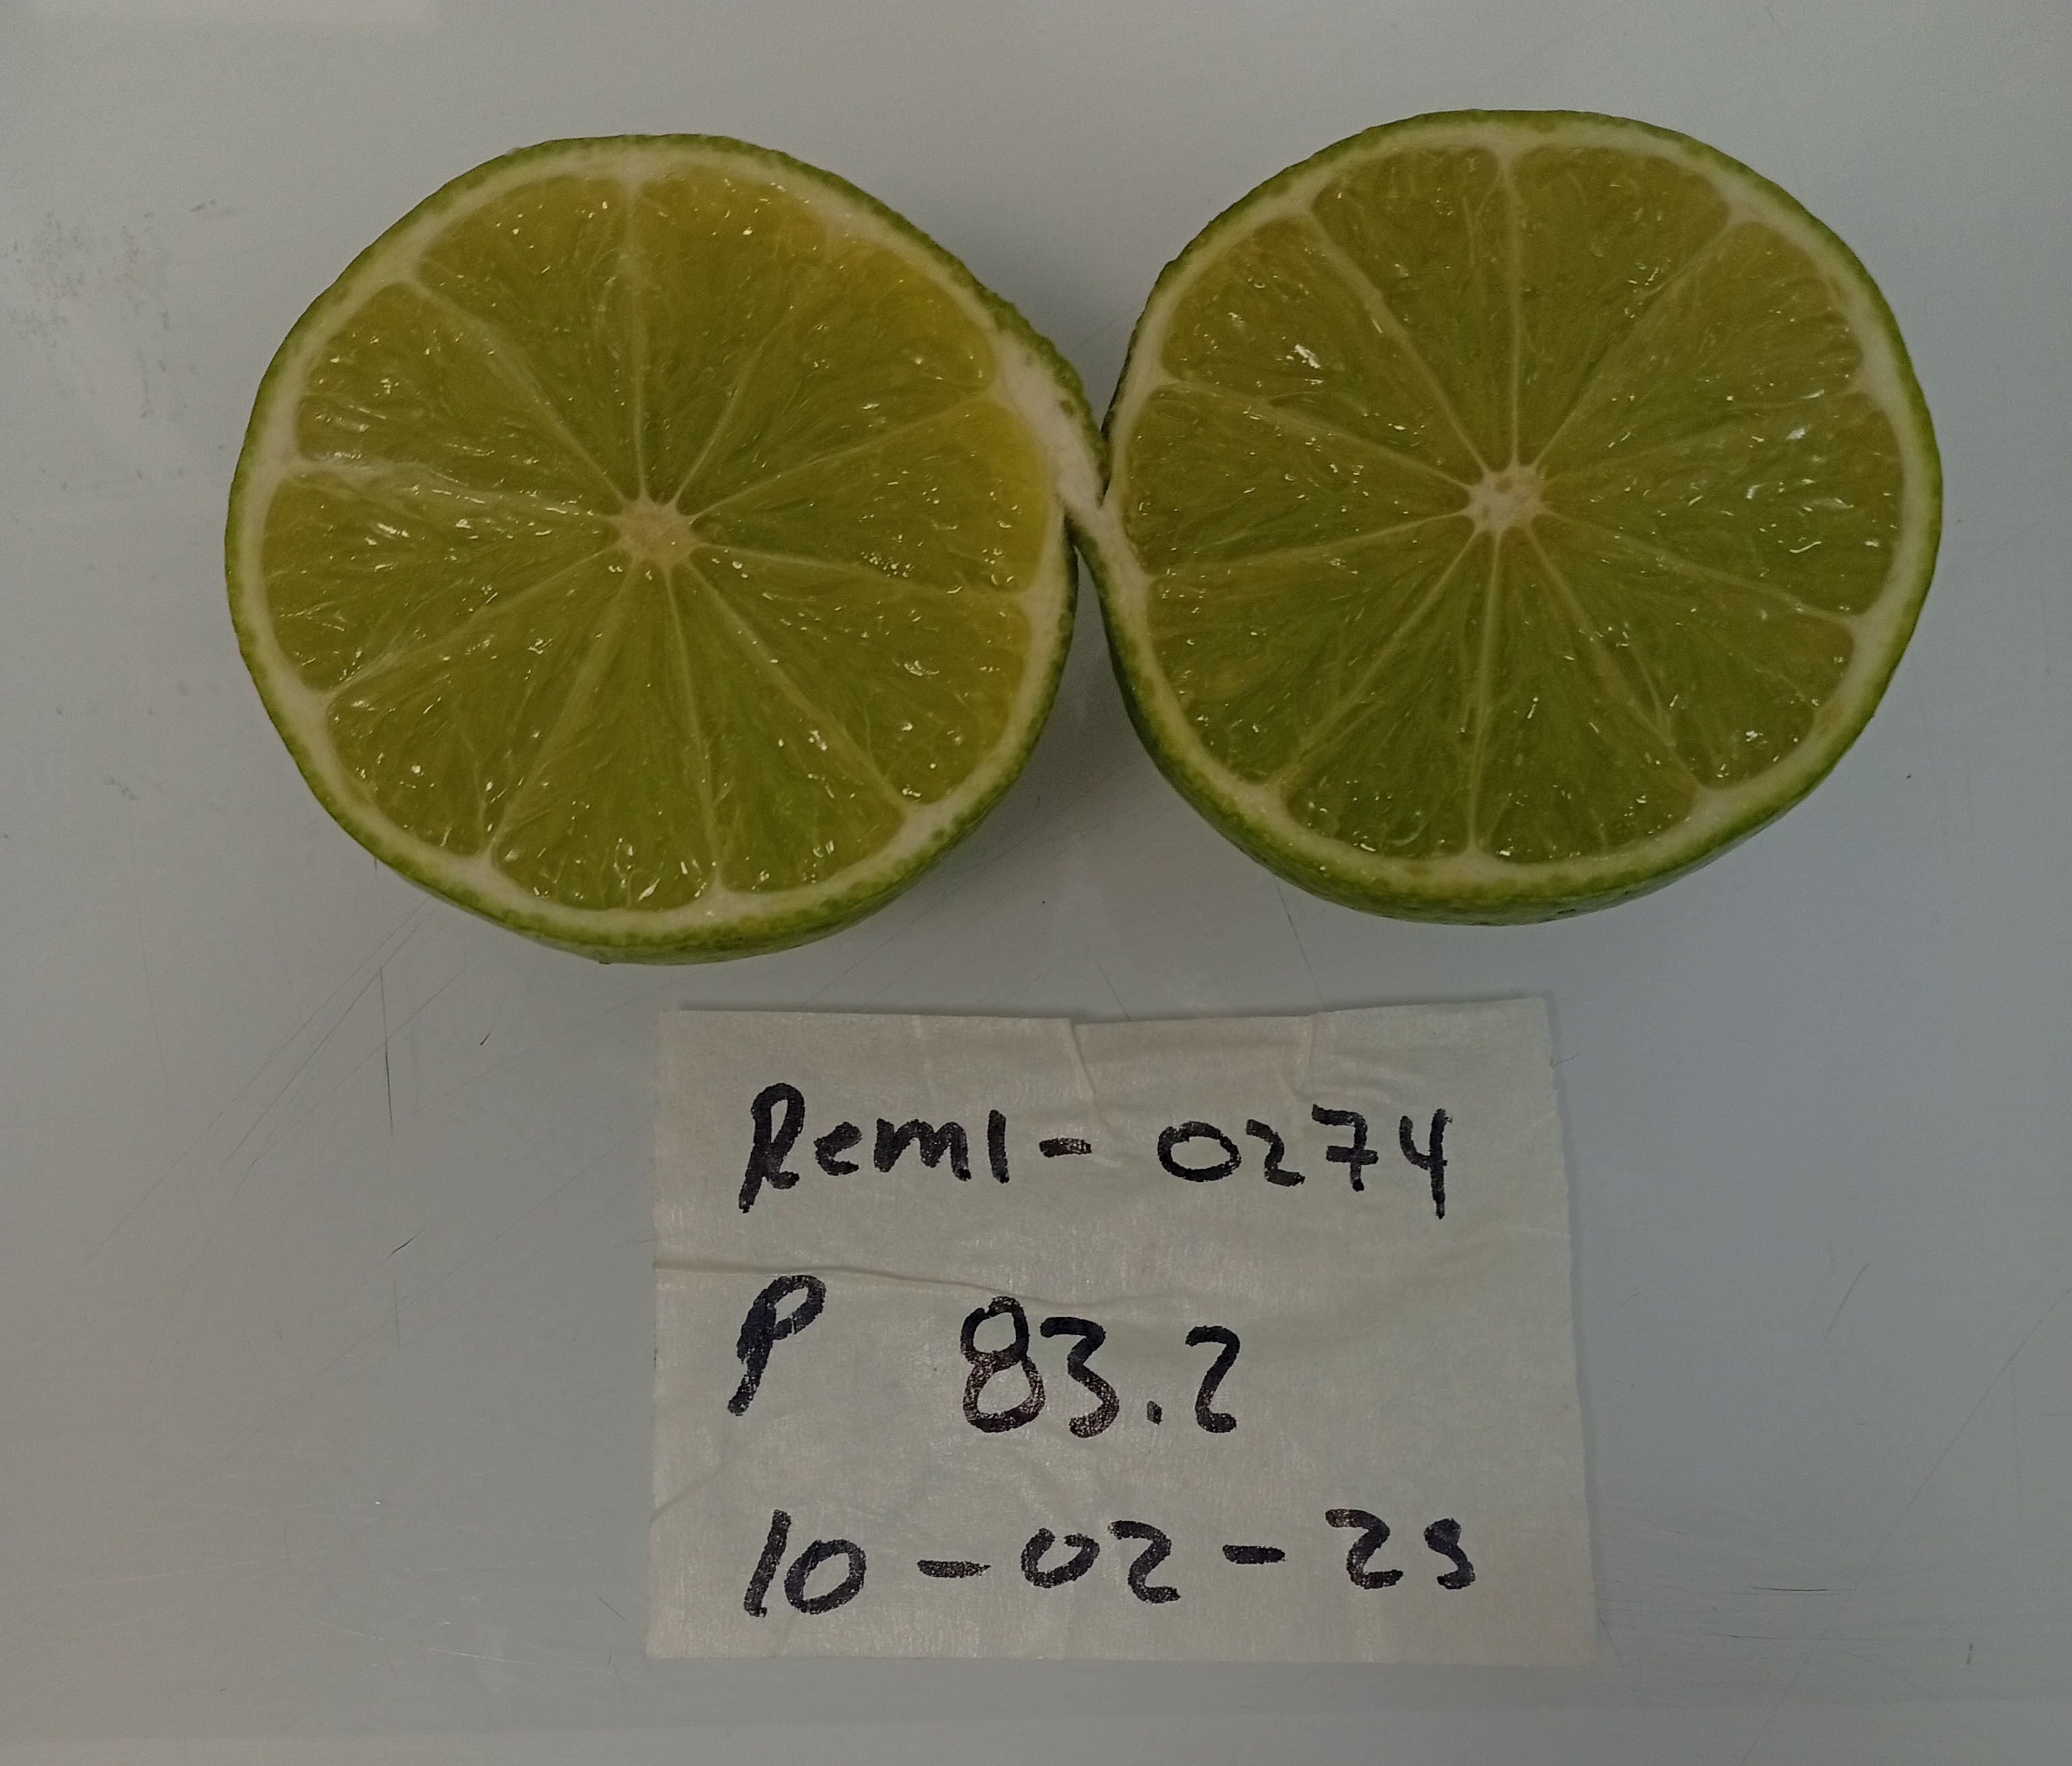 Rem1- 0274
P 83.2
10-02-25